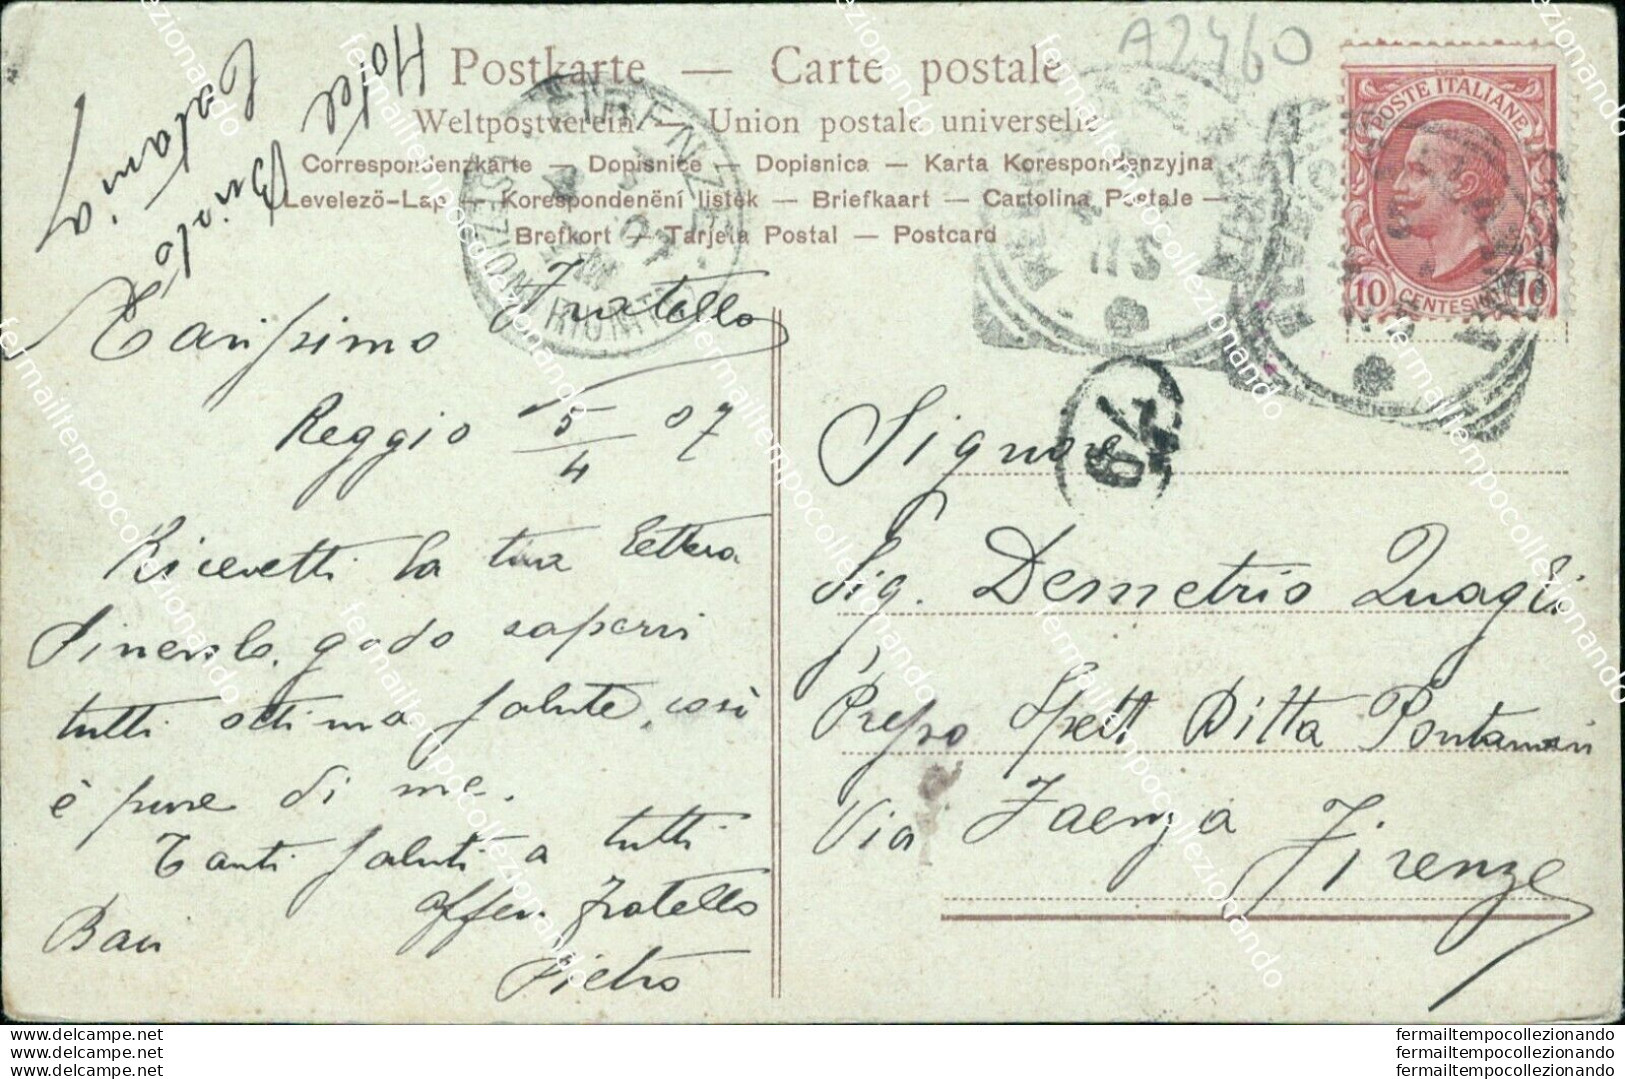 A2460
Postkarte — Carte postale
Weltpostverein — Union postale universelle
Correspondenzkarte — Dopisnice — Dopisnica — Karta Korespondenzyjna
Levelező-Lap — Korespondenční listek — Briefkaart — Cartolina Postale —
Brefkort — Tarjeta Postal — Postcard
POSTE ITALIANE
10 CENTESIMI 10
FIRENZE
07
Hotel
Catania
Carissimo Fratello
Reggio 5/4 07
Ricevetti la tua lettera
godo sapervi
tutti ottima salute, così
è pure di me.
Tanti saluti a tutti
Baci affez. fratello
Pietro
Signore
Sig. Demetrio Quagli
Presso Spett. Ditta
Via Faenza Firenze
67
delcampe.net
delcampe.net
delcampe.net
fermailtempocollezionando
fermailtempocollezionando
fermailtempocollezionando